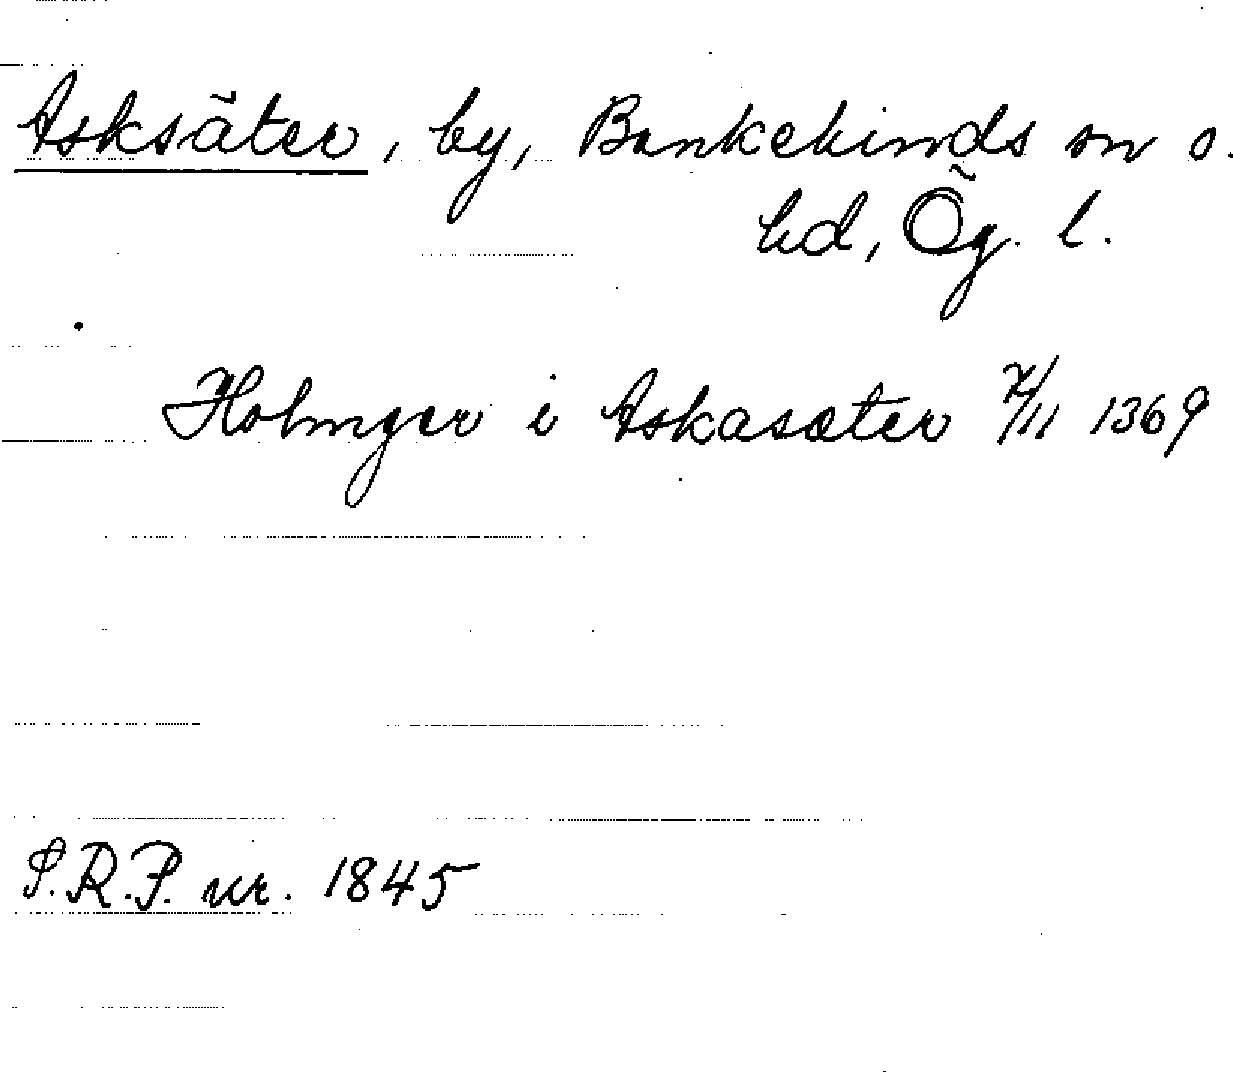 Asksäter, by, Bankekinds sn o.
hd, Ög. l.
Holmger i Askasæter 7/11 1369
S.R.P. nr. 1845